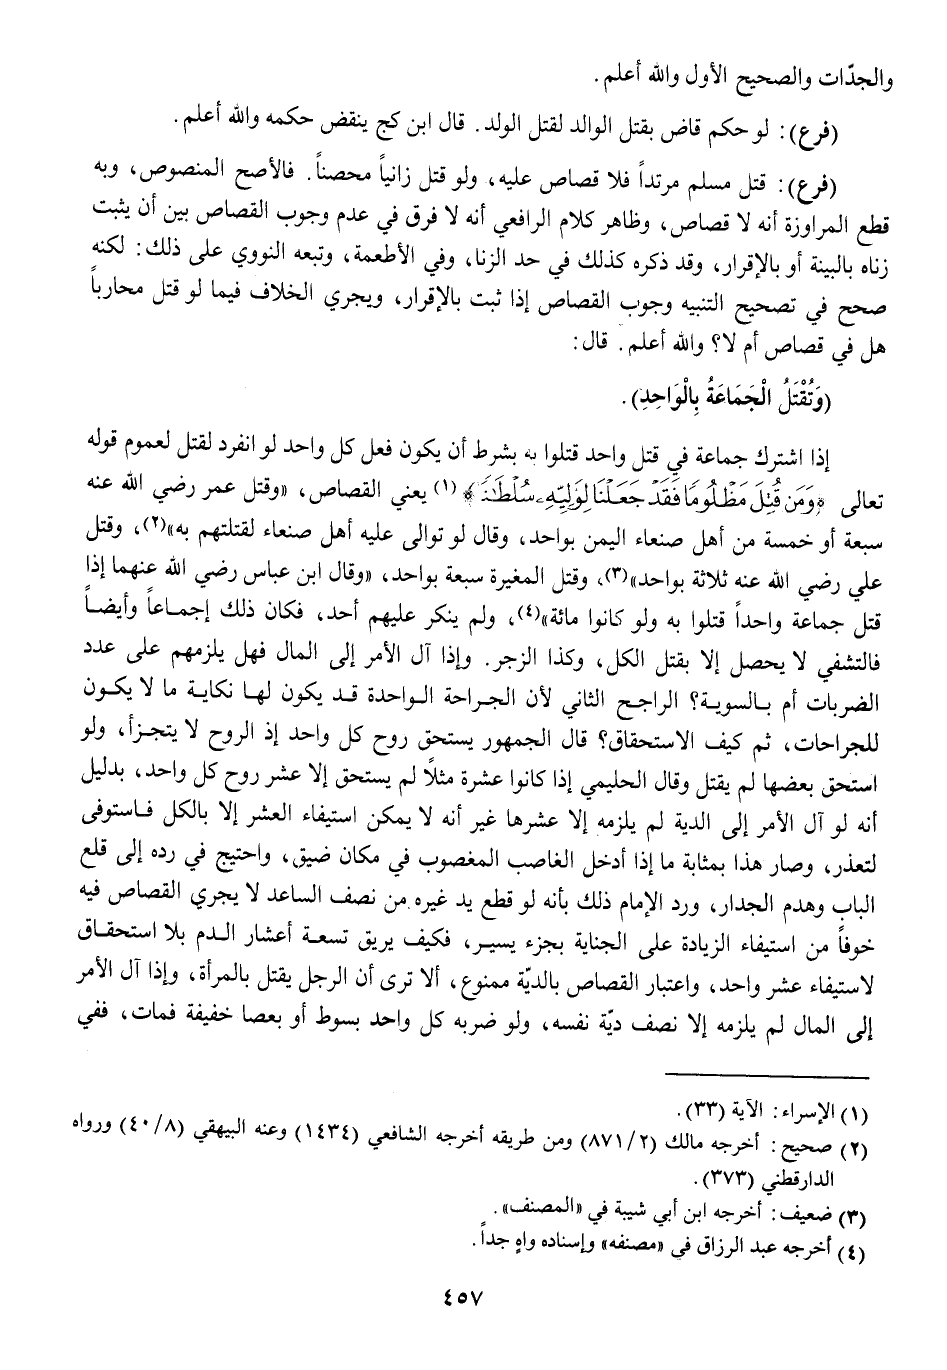 والجدّات والصحيح الأول والله أعلم.
(فرع): لو حكم قاض بقتل الوالد لقتل الولد. قال ابن كج ينقض حكمه والله أعلم.
(فرع): قتل مسلم مرتداً فلا قصاص عليه، ولو قتل زانياً محصناً. فالأصح المنصوص، وبه
قطع المراوزة أنه لا قصاص، وظاهر كلام الرافعي أنه لا فرق في عدم وجوب القصاص بين أن يثبت
زناه بالبينة أو بالإقرار، وقد ذكره كذلك في حد الزنا، وفي الأطعمة، وتبعه النووي على ذلك: لكنه
صحح في تصحيح التنبيه وجوب القصاص إذا ثبت بالإقرار، ويجري الخلاف فيما لو قتل محارباً
هل في قصاص أم لا؟ والله أعلم. قال:
(وَتُقْتَلُ الْجَمَاعَةُ بِالْوَاحِدِ).
إذا اشترك جماعة في قتل واحد قتلوا به بشرط أن يكون فعل كل واحد لو انفرد لقتل لعموم قوله
تعالى ﴿وَمَن قُتِلَ مَظْلُومًا فَقَدْ جَعَلْنَا لِوَلِيِّهِۦ سُلْطَٰنًا﴾ (١) يعني القصاص، «وقتل عمر رضي الله عنه
سبعة أو خمسة من أهل صنعاء اليمن بواحد، وقال لو توالى عليه أهل صنعاء لقتلتهم به»(٢)، وقتل
علي رضي الله عنه ثلاثة بواحد»(٣)، وقتل المغيرة سبعة بواحد، «وقال ابن عباس رضي الله عنهما إذا
قتل جماعة واحداً قتلوا به ولو كانوا مائة»(٤)، ولم ينكر عليهم أحد، فكان ذلك إجماعاً وأيضاً
فالتشفي لا يحصل إلا بقتل الكل، وكذا الزجر. وإذا آل الأمر إلى المال فهل يلزمهم على عدد
الضربات أم بالسوية؟ الراجح الثاني لأن الجراحة الواحدة قد يكون لها نكاية ما لا يكون
للجراحات، ثم كيف الاستحقاق؟ قال الجمهور يستحق روح كل واحد إذ الروح لا يتجزأ، ولو
استحق بعضها لم يقتل وقال الحليمي إذا كانوا عشرة مثلاً لم يستحق إلا عشر روح كل واحد، بدليل
أنه لو آل الأمر إلى الدية لم يلزمه إلا عشرها غير أنه لا يمكن استيفاء العشر إلا بالكل فاستوفى
لتعذر، وصار هذا بمثابة ما إذا أدخل الغاصب المغصوب في مكان ضيق، واحتيج في رده إلى قلع
الباب وهدم الجدار، ورد الإمام ذلك بأنه لو قطع يد غيره من نصف الساعد لا يجري القصاص فيه
خوفاً من استيفاء الزيادة على الجناية بجزء يسير، فكيف يريق تسعة أعشار الدم بلا استحقاق
لاستيفاء عشر واحد، واعتبار القصاص بالديّة ممنوع، ألا ترى أن الرجل يقتل بالمرأة، وإذا آل الأمر
إلى المال لم يلزمه إلا نصف ديّة نفسه، ولو ضربه كل واحد بسوط أو بعصا خفيفة فمات، ففي
(١) الإسراء: الآية (٣٣).
(٢) صحيح: أخرجه مالك (٨٧١/٢) ومن طريقه أخرجه الشافعي (١٤٣٤) وعنه البيهقي (٤٠/٨) ورواه
الدارقطني (٣٧٣).
(٣) ضعيف: أخرجه ابن أبي شيبة في «المصنف».
(٤) أخرجه عبد الرزاق في «مصنفه» وإسناده واهٍ جداً.
٤٥٧